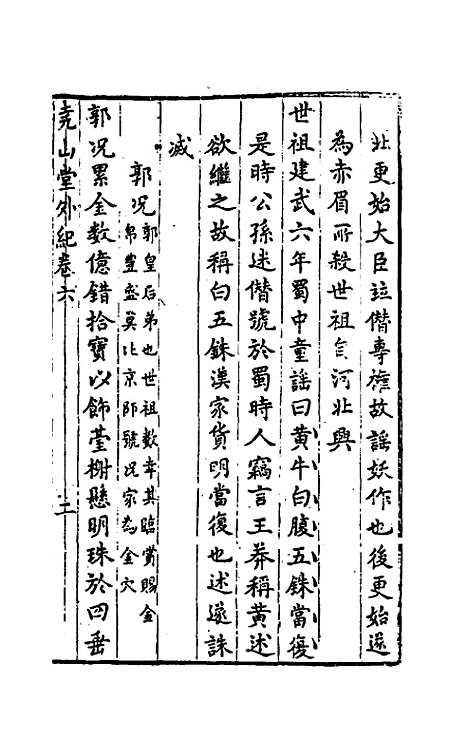 北更始大臣並僭專權故謡妖作也後更始遂
為赤眉所殺世祖自河北興
世祖建武六年蜀中童謡曰黄牛白腹五銖當復
是時公孫述僭號於蜀時人竊言王莽稱黄述
欲繼之故稱白五銖漢家貨明當復也述遂誅
滅
郭况
郭皇后弟也世祖數幸其臨賞賜金
帛豊盛莫比京師號况家為金穴
郭况累金數億錯拾寳以飾䑓榭懸明珠於四垂
尭山堂外紀卷六
二